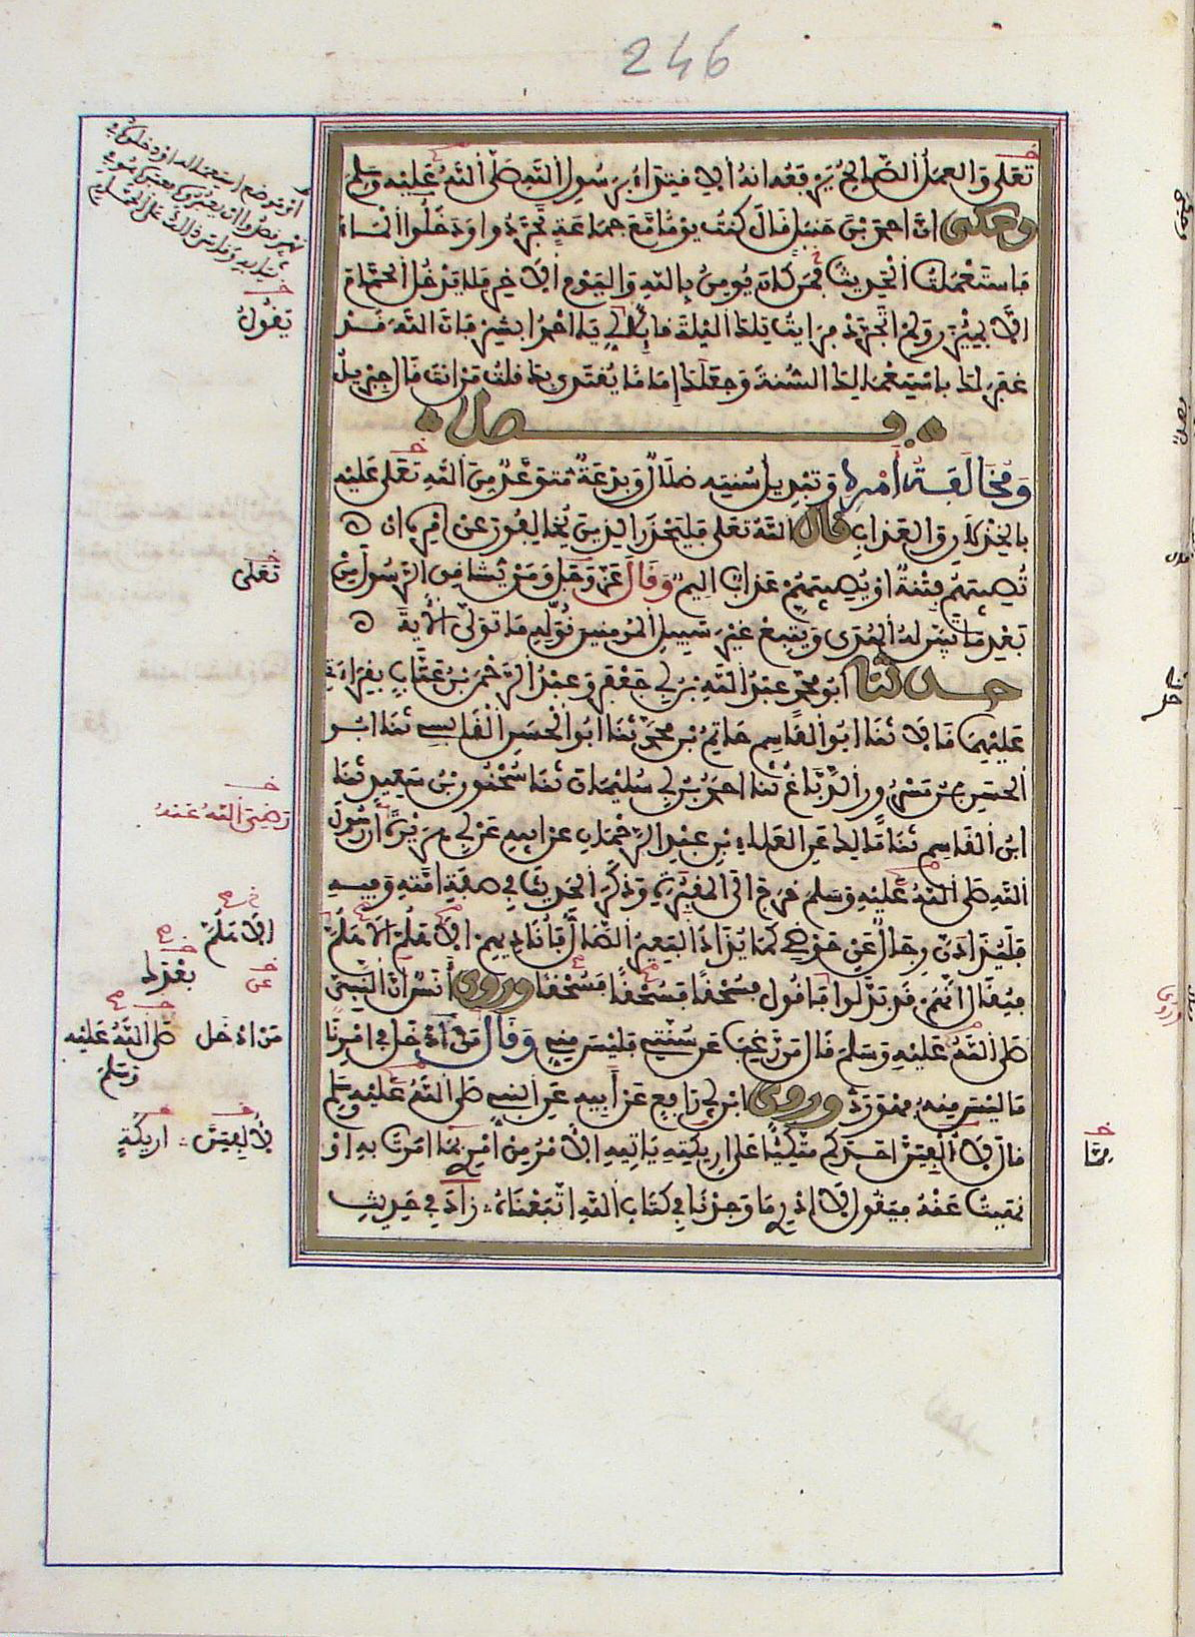 246
تعلى والعمل الصالح يرفعه انه الا فيتراء برسول الله صلى الله عليه وسلم
وحكى ان احمد بن حنبل قال كنت يوما مع جماعة تجردوا ودخلوا الماء
فاستعملت الحديث فمن كان يومن بالله واليوم الاخر فلا يدخل الحمام
الا بميزر ولم اتجرد فرايت تلك اليلة قايلا لي يا احمد ابشر فان الله قد
غفر لك باستعمالك السنة وجعلك اماما يقتدى بك قلت من انت قال جبريل
فصل
ومخالفة امره وتبديل سنته ضلال وبدعة متوعد من الله تعلى عليه
بالخذلان والعذاب قال الله تعلى فليحذر الذين يخالفون عن امره ان
تصيبهم فتنة او يصيبهم عذاب اليم وقال عز وجل ومن يشاقق الرسول من
بعد ما تبين له الهدى ويتبع غير سبيل المومنين نوله ما تولى الاية
حدثنا ابو محمد عبد الله بن ابي جعفر وعبد الرحمن بن عتاب بقراءتي
عليهما قالا ثنا ابو القاسم حاتم بن محمد ثنا ابو الحسن القابسي ثنا ابو
الحسن بن مسرور الدباغ ثنا احمد بن ابي سليمان ثنا سحنون بن سعيد ثنا
ابن القاسم ثنا مالك عن العلاء بن عبد الرحمان عن ابيه عن ابي هريرة ان رسول
الله صلى الله عليه وسلم خرج الى المقبرة وذكر الحديث في صفة امته وفيه
فليذادن رجال عن حوضي كما يذاد البعير الضال فاناديهم الا هلم الا هلم
فيقال انهم قد بدلوا فاقول فسحقا فسحقا فسحقا وروى انس ان النبي
صلى الله عليه وسلم قال من رغب عن سنتي فليس مني وقال من ادخل في امرنا
ما ليس منه فهو رد وروى ابن ابي رافع عن ابيه عن النبي صلى الله عليه وسلم
قال لا الفين احدكم متكئا على اريكته ياتيه الامر من امري مما امرت به او
نهيت عنه فيقول لا ادري ما وجدنا في كتاب الله اتبعناه زاد في حديث
يقول
تعلى
رضي الله عنه
الا هلم
بعدك
عن
من ادخل صلى الله عليه
وسلم
لا الفين اريكة
مما